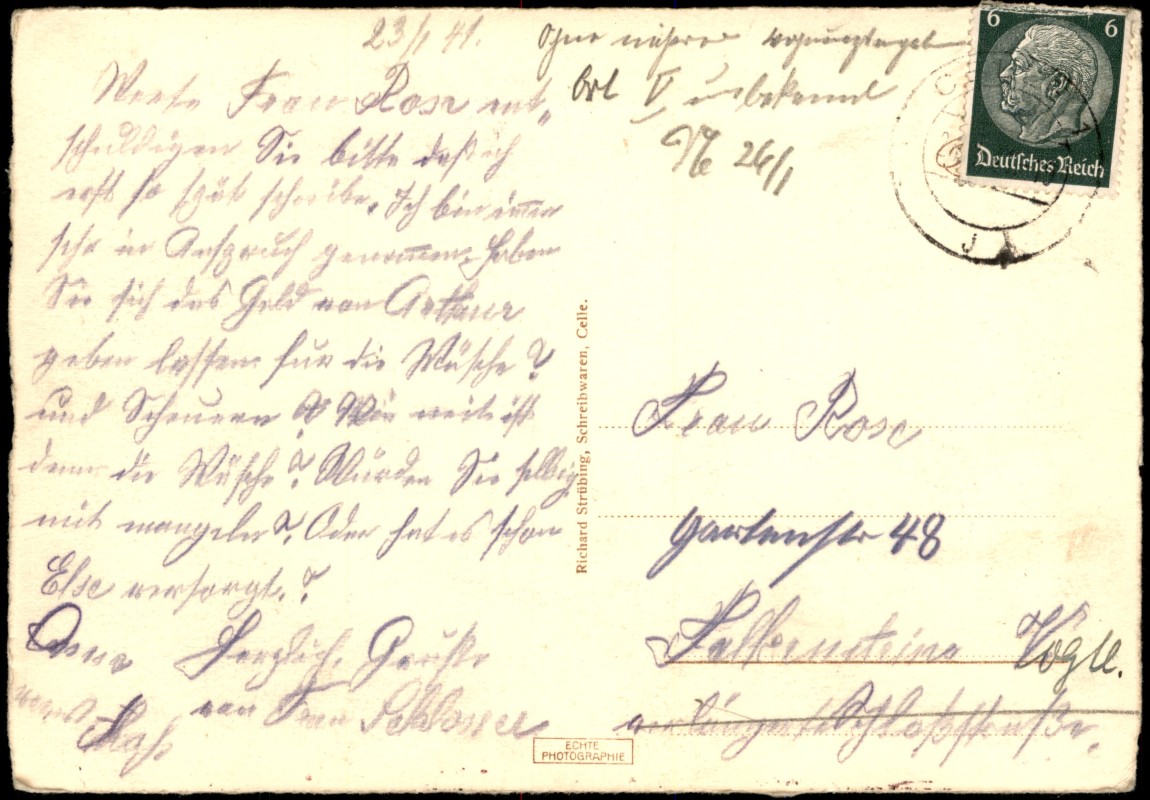 23/1 41.
Ohne nähere Wohnungsangabe
Ort V unbekannt
26/1
Werte Frau Rose ent-
schuldigen Sie bitte daß ich
erst so spät schreibe. Ich bin immer
sehr in Anspruch genommen. Haben
Sie sich das Geld von Arthur
geben lassen für die Wäsche?
und Scheuern Wie weit ist
denn die Wäsche? Würden Sie selbige
mit mangeln? Oder hat es schon
Else versorgt.?
Herzlich. Grüße
von Frau Schlosser
Richard Strübing, Schreibwaren, Celle.
ECHTE
PHOTOGRAPHIE
6 6
Deutsches Reich
Frau Rose
Gartenstr 48
Falkenstein Vogtl.
verlängerte Schloßstraße.